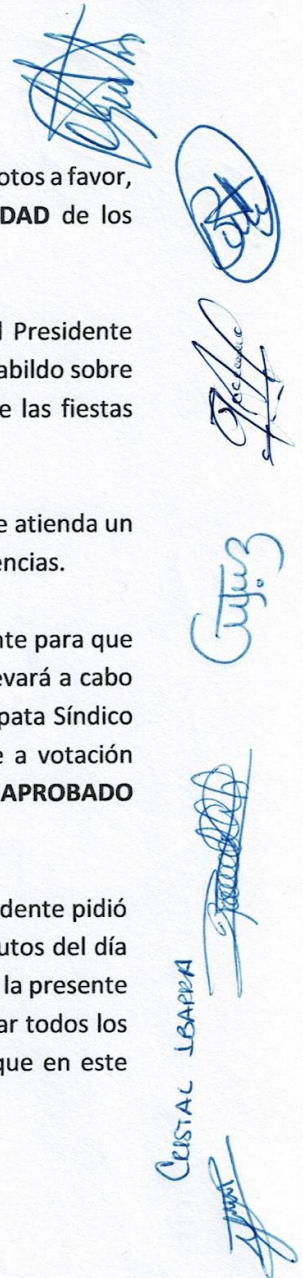 otos a favor,
DAD de los
l Presidente
abildo sobre
e las fiestas
e atienda un
encias.
nte para que
evará a cabo
pata Síndico
e a votación
APROBADO
dente pidió
utos del día
la presente
ar todos los
que en este
CRISTAL IBARRA